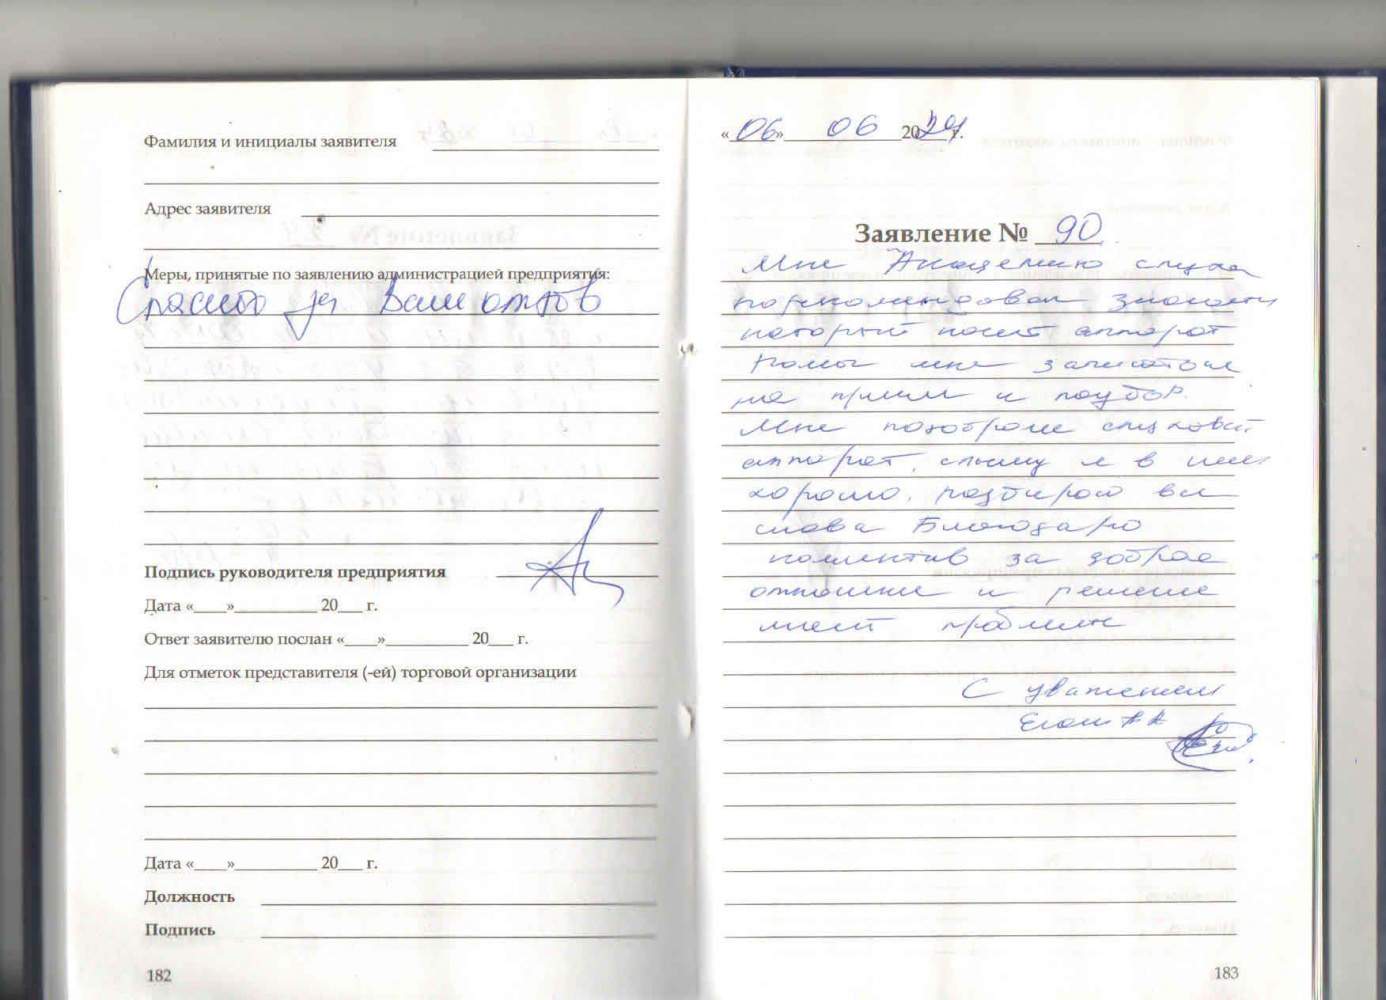 Фамилия и инициалы заявителя
Адрес заявителя
Меры, принятые по заявлению администрацией предприятия:
Спасибо за Ваш отзыв
Подпись руководителя предприятия
Дата «____»__________ 20___ г.
Ответ заявителю послан «____»__________ 20___ г.
Для отметок представителя (-ей) торговой организации
Дата «____»__________ 20___ г.
Должность
Подпись
182
«06» 06 2024 г.
Заявление № 90
Мне Академию слуха
порекомендовал знакомый
который носит аппарат
Помог мне записаться
на прием и подбор.
Мне подобрали слуховой
аппарат, слышу я в нем
хорошо, разбираю все
слова Благодарю
коллектив за доброе
отношение и решение
моей проблемы
С уважением
183